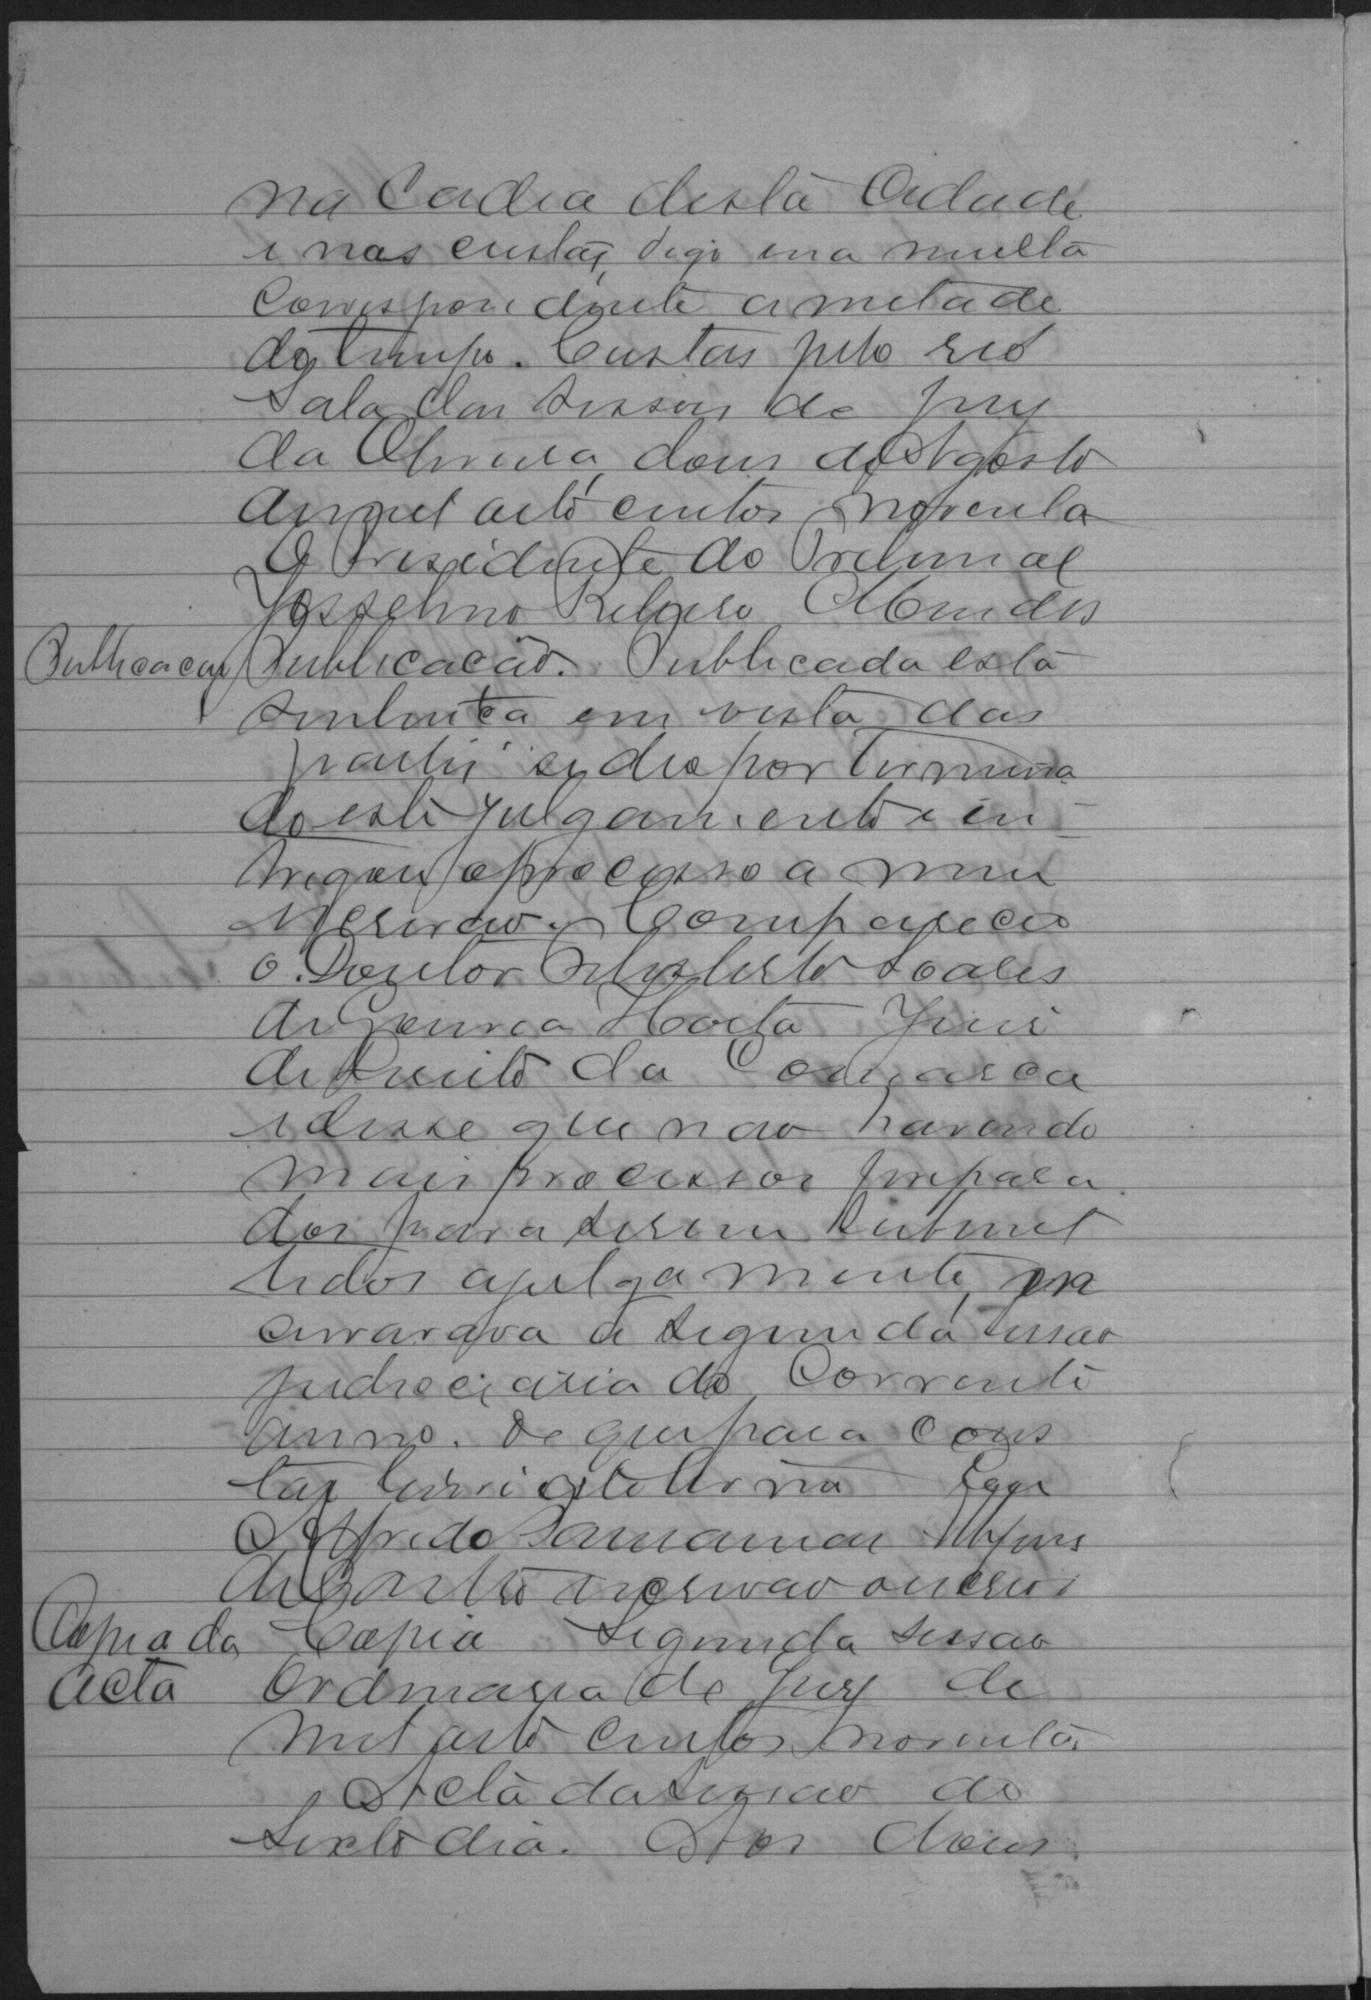 na Cadea desta Cidade
e nas custas, digo e na multa
correspondente a metade
do tempo. Custas pelo reo
Sala das Sessoes do Jury
da Oliveira, dous de Agosto
de mil oito centos noventa
O Presidente do Tribunal
Josselino Ribeiro Mendes
Publicacao Publicacão. Publicada esta
sentença em vista das
partes e deo por termina
do este julgamento e en-
tregou o processo a mim
Escrivão. Compareceo
o Doutor Soares
de Gouvea Horta Juis
de Direito da Comarca
e disse que não havendo
mais processos prepara
dos para serem submet
tidos a julgamento, en
cerrarava a segunda sessão
judiciaria do corrente
anno. De que para cons
tar lavrei este termo Eu
Alfredo
de Castro escrivao o escrevi
Copia da Copia Segunda sessão
Acta Ordinaria do Jury de
mil oito centos noventa
Acta da Sessao do
Sexto dia. Aos dous